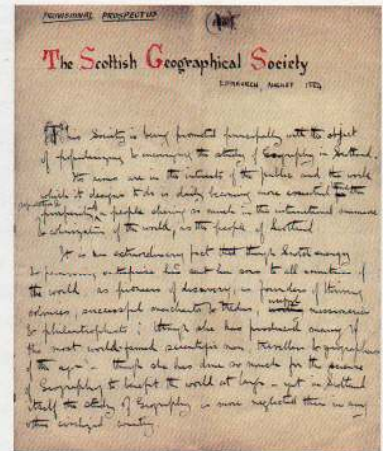 PROVISIONAL PROSPECTUS
The Scottish Geographical Society
EDINBURGH, AUGUST 1884
This Society is being promoted principally with the object
of popularising & encouraging the study of Geography in Scotland.
Its aims are in the interests of the public and the work
which it designs to do is daily becoming more essential to the
prosperity of a people sharing so much in the international commerce
& colonization of the world, as the people of Scotland
It is an extraordinary fact that though Scotch energy
& persevering enterprise has sent her sons to all countries of
the world, as pioneers of discovery, as founders of thriving
colonies, successful merchants & traders, missionaries
& philanthropists; though she has produced many of
the most world-famed scientific men, travellers & geographers
of the age – though she has done so much for the science
of Geography to benefit the world at large – yet in Scotland
itself the study of Geography is more neglected than in any
other civilized country